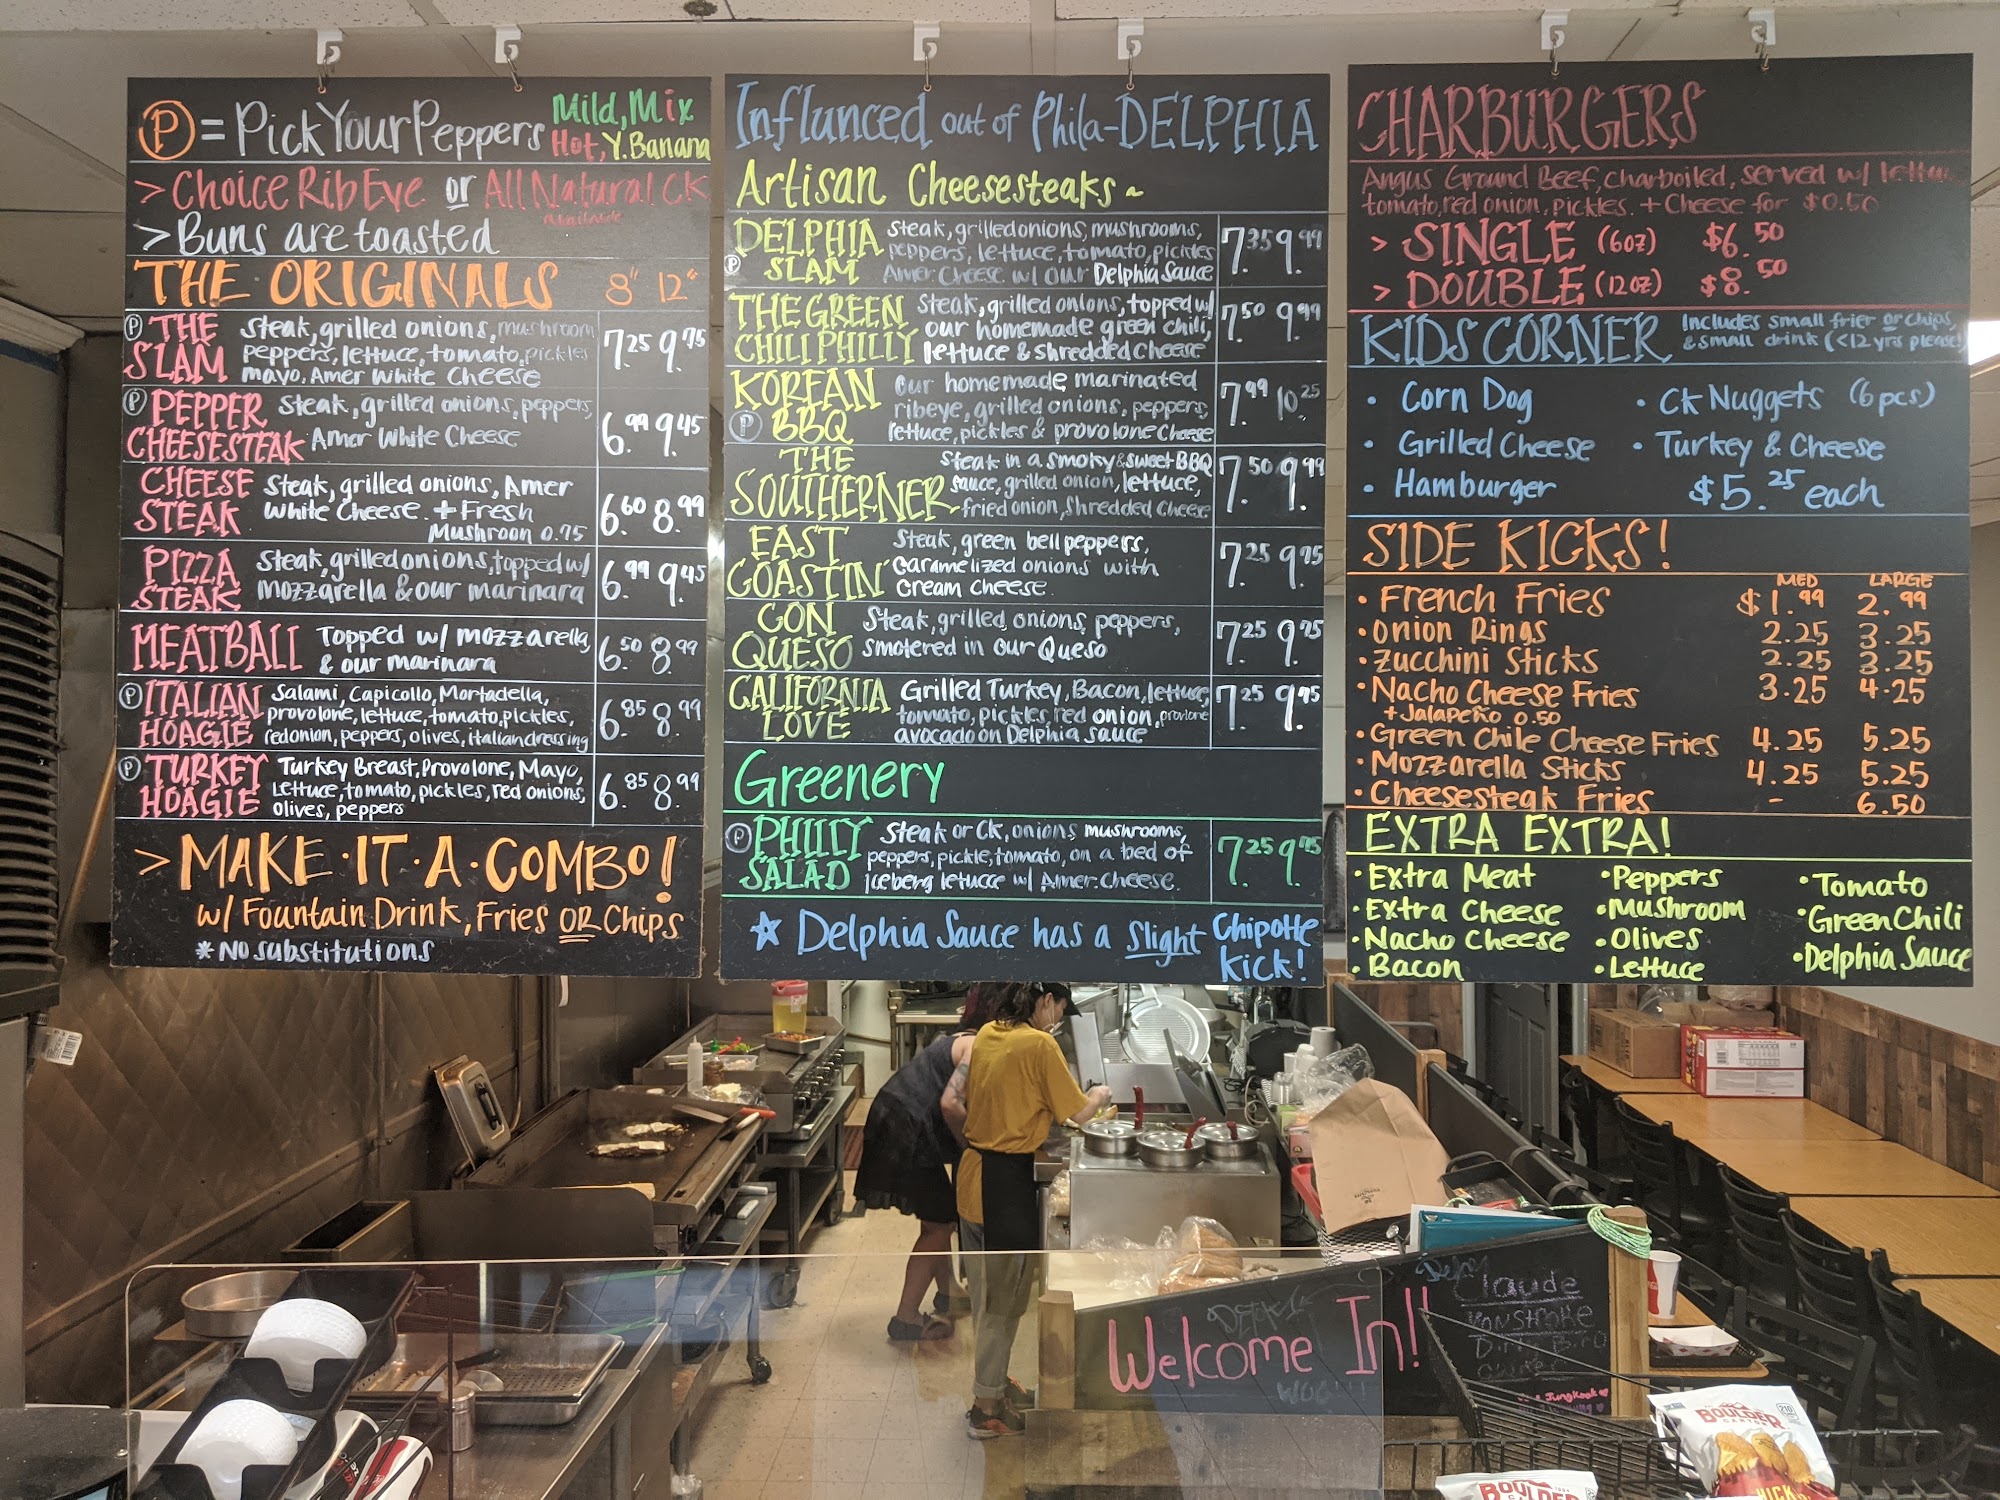 P = Pick Your Peppers Mild, Mix
Hot, Y. Banana
> Choice RibEye or All Natural CK
available
> Buns are toasted
THE ORIGINALS 8" 12"
P THE SLAM
Steak, grilled onions, mushroom
peppers, lettuce, tomato, pickles
mayo, Amer White Cheese
7.25 9.75
P PEPPER CHEESESTEAK
Steak, grilled onions, peppers,
Amer White Cheese
6.99 9.45
CHEESE STEAK
Steak, grilled onions, Amer
White Cheese. + Fresh
Mushroon 0.75
6.60 8.99
PIZZA STEAK
Steak, grilled onions, topped w/
mozzarella & our marinara
6.99 9.45
MEATBALL
Topped w/ mozzarella,
& our marinara
6.50 8.99
P ITALIAN HOAGIE
Salami, Capicollo, Mortadella,
provolone, lettuce, tomato, pickles,
red onion, peppers, olives, italian dressing
6.85 8.99
P TURKEY HOAGIE
Turkey Breast, Provolone, Mayo,
Lettuce, tomato, pickles, red onions,
olives, peppers
6.85 8.99
> MAKE · IT · A · COMBO!
w/ Fountain Drink, Fries OR Chips
* No substitutions
Influnced out of Phila-DELPHIA
Artisan Cheesesteaks ~
P DELPHIA SLAM
Steak, grilled onions, mushrooms,
peppers, lettuce, tomato, pickles
Amer Cheese w/ our Delphia Sauce
7.35 9.99
THE GREEN CHILI PHILLY
Steak, grilled onions, topped w/
our homemade green chili,
lettuce & shredded cheese
7.50 9.99
P KOREAN BBQ
Our homemade marinated
ribeye, grilled onions, peppers,
lettuce, pickles & provolone cheese
7.99 10.25
THE SOUTHERNER
Steak in a smoky & sweet BBQ
sauce, grilled onion, lettuce,
fried onion, shredded cheese
7.50 9.99
EAST COASTIN'
Steak, green bell peppers,
caramelized onions with
cream cheese.
7.25 9.75
CON QUESO
Steak, grilled onions, peppers,
smotered in our Queso
7.25 9.75
CALIFORNIA LOVE
Grilled Turkey, Bacon, lettuce,
tomato, pickles, red onion, provlone
avocado on Delphia sauce
7.25 9.75
Greenery
P PHILLY SALAD
Steak or Ck, onions mushrooms,
peppers, pickle, tomato, on a bed of
iceberg letucce w/ Amer. cheese.
7.25 9.75
☆ Delphia Sauce has a slight Chipotte
kick!
CHARBURGERS
Angus Ground Beef, charboiled, served w/ lettuce
tomato, red onion, pickles. + Cheese for $0.50
> SINGLE (6oz) $6.50
> DOUBLE (12oz) $8.50
KIDS CORNER includes small frier or chips,
& small drink (<12 yrs please!)
• Corn Dog • Ck Nuggets (6pcs)
• Grilled Cheese • Turkey & Cheese
• Hamburger $5.25 each
SIDE KICKS!
MED LARGE
• French Fries $1.99 2.99
• Onion Rings 2.25 3.25
• Zucchini Sticks 2.25 3.25
• Nacho Cheese Fries 3.25 4.25
+ Jalapeño 0.50
• Green Chile Cheese Fries 4.25 5.25
• Mozzarella Sticks 4.25 5.25
• Cheesesteak Fries - 6.50
EXTRA EXTRA!
• Extra Meat • Peppers • Tomato
• Extra Cheese • Mushroom • Green Chili
• Nacho Cheese • Olives • Delphia Sauce
• Bacon • Lettuce
Welcome In!
Claude
VonStroke
Dirty Bird
JungKook
BOULDER
CANYON
BOULDER